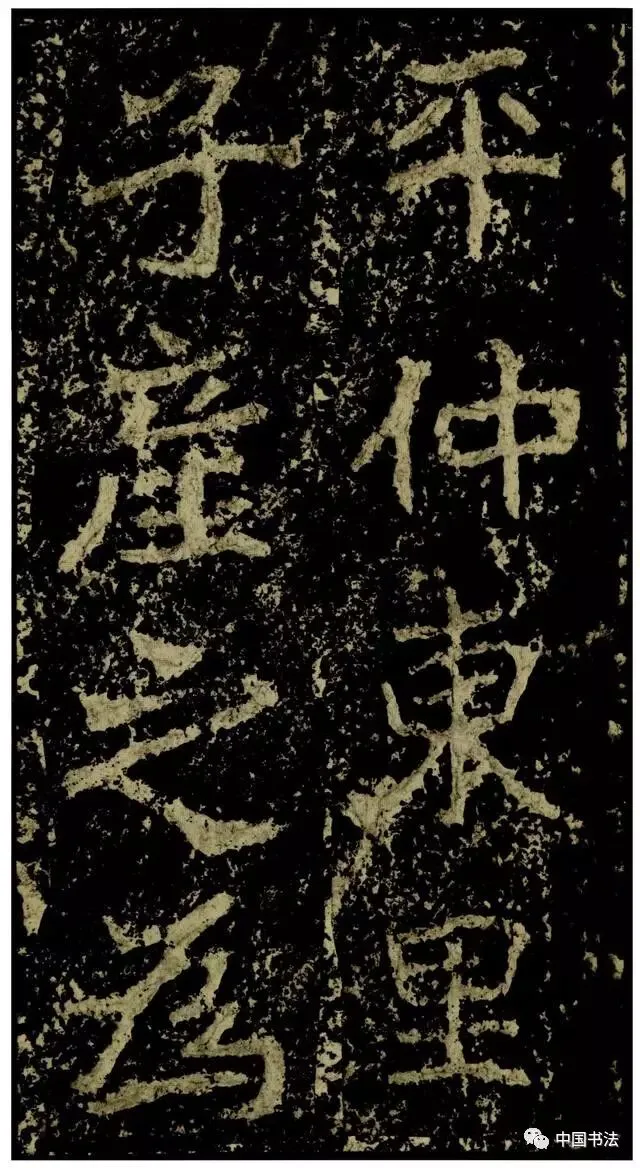 平仲東里
子產之為
中国书法